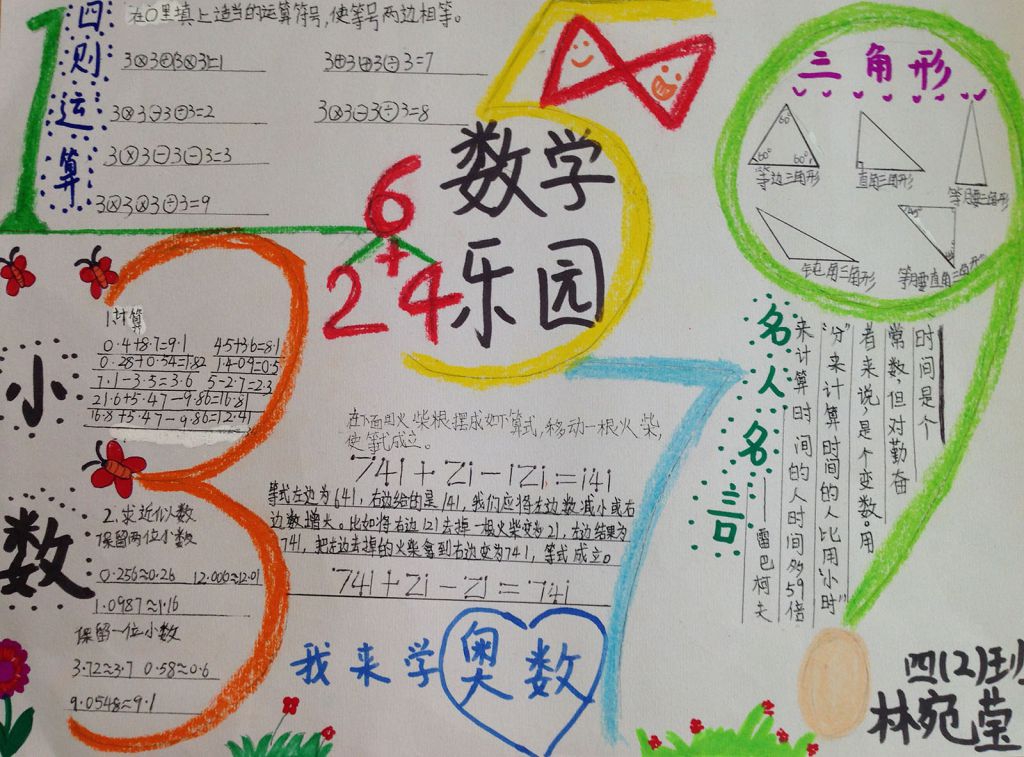 四则运算
在○里填上适当的运算符号,使等号两边相等。
3⊗3⊖3⊖3=3
3⊗3⊗3⊕3=9
数学
乐园
6
+
2 4
三角形
60°
60° 60°
等边三角形
直角三角形
等腰三角形
钝角三角形
45°
等腰直角三角形
小数
1.计算
0.4+8.7=9.1 4.5+3.6=8.1
0.28+0.54=1.82 1.4-0.9=0.5
7.1-3.5=3.6 5-2.7=2.3
21.6+5.47-9.86=16.81
16.8+5.47-9.86=12.41
2.求近似数
保留两位小数
0.256≈0.26 12.006≈12.01
1.0987≈1.16
保留一位小数
3.72≈3.7 0.58≈0.6
9.0548≈9.1
在下面用火柴根摆成如下算式,移动一根火柴,
使等式成立。
741+21-121=141
等式左边为641,右边给的是141,我们应将左边数减小或右
边数增大。比如将右边121去掉一根火柴变为21,左边结果为
741,把左边去掉的火柴拿到右边变为741,等式成立。
741+21-21=741
我来学奥数
名人名言
时间是个
常数,但对勤奋
者来说,是个变数。用
"分"来计算时间的人比用"小时"
来计算时间的人时间多59倍
——雷巴柯夫
四(2)班
林宛莹